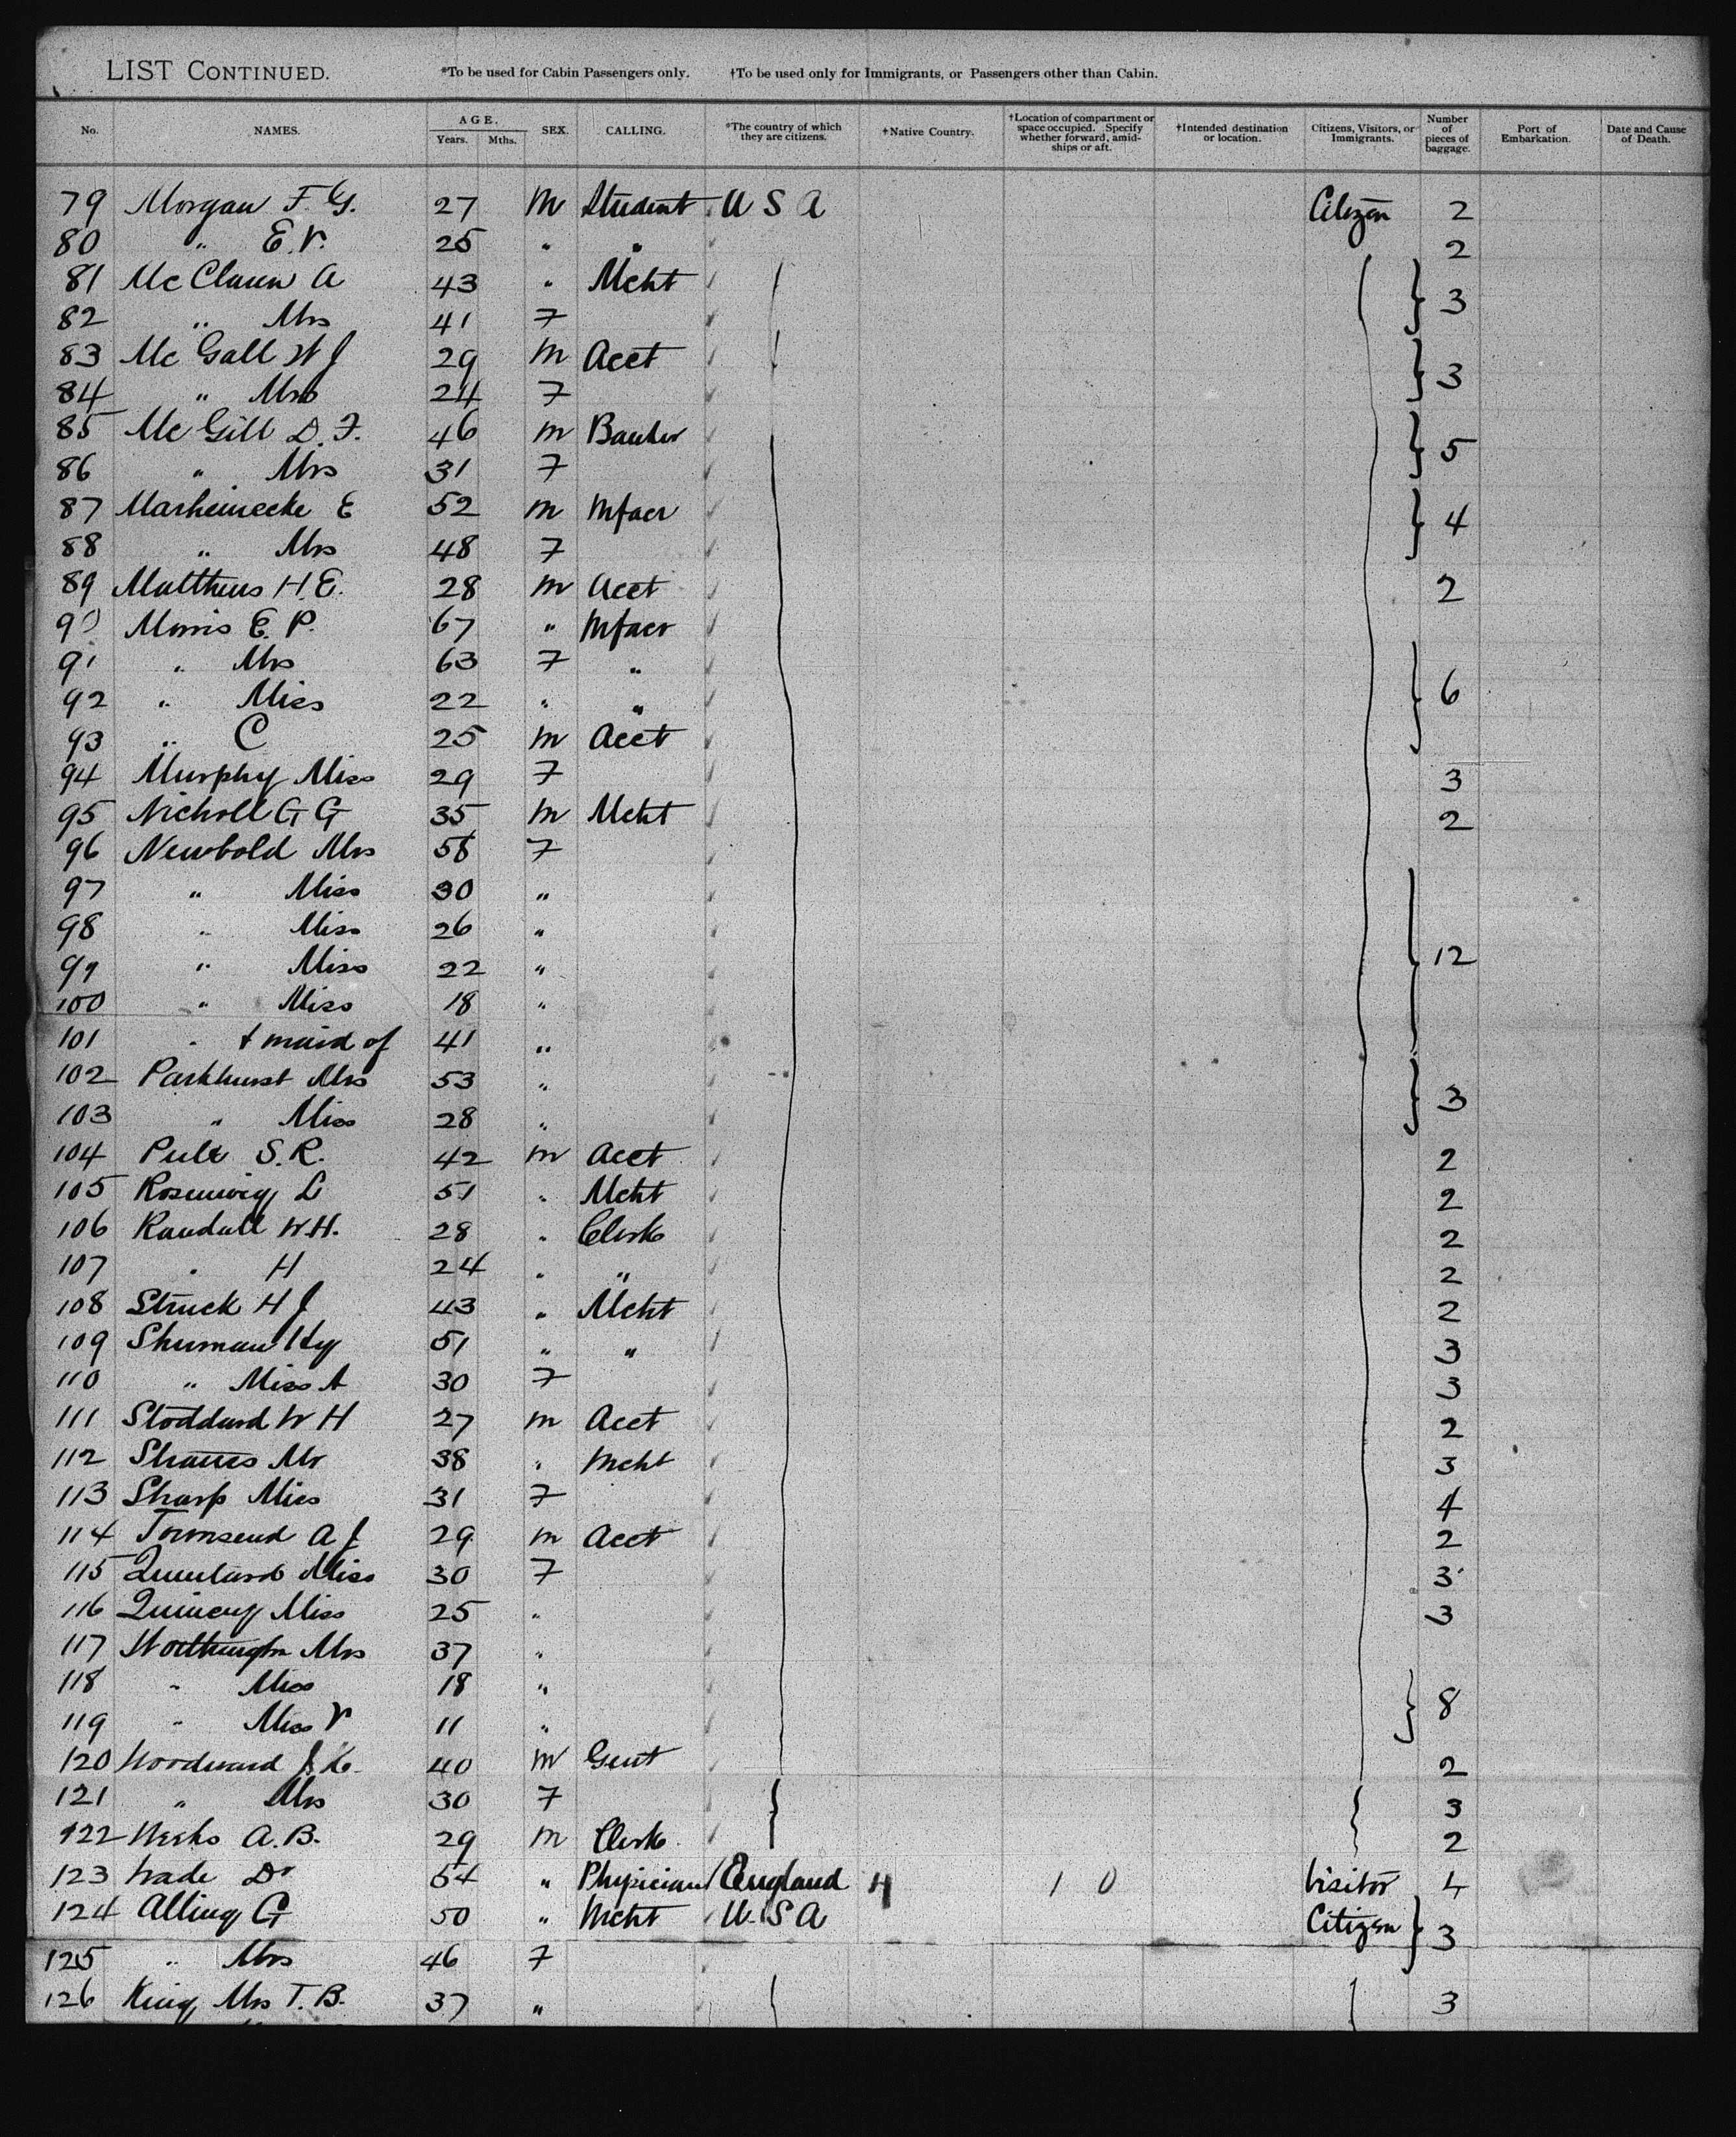 LIST CONTINUED. *To be used for Cabin Passengers only. †To be used only for Immigrants, or Passengers other than Cabin.
No. NAMES. AGE. Years. Mths. SEX. CALLING. *The country of which they are citizens. †Native Country. †Location of compartment or space occupied. Specify whether forward, amid-ships or aft. †Intended destination or location. Citizens, Visitors, or Immigrants. Number of pieces of baggage. Port of Embarkation. Date and Cause of Death.
79 Morgan F. G. 27 M Student U S A Citizen 2
80 " E. V. 25 " " 2
81 McClaun A 43 " Mcht 3
82 " Mrs 41 F
83 Mc Gall W J 29 M Acct 3
84 " Mrs 24 F
85 Mc Gill D. F. 46 M Banker 5
86 " Mrs 31 F
87 Marheinecke E 52 M Mfacr 4
88 " Mrs 48 F
89 Matthews H. E. 28 M Acct 2
90 Morris E. P. 67 " Mfacr
91 " Mrs 63 F "
92 " Miss 22 " " 6
93 " C 25 M Acct
94 Murphy Miss 29 F 3
95 Nicholl G G 35 M Mcht 2
96 Newbold Mrs 58 F
97 " Miss 30 "
98 " Miss 26 "
99 " Miss 22 " 12
100 " Miss 18 "
101 " + maid of 41 "
102 Parkhurst Mrs 53 "
103 " Miss 28 " 3
104 S. R. 42 M Acct 2
105 Rosenwig L 51 " Mcht 2
106 Randall W. H. 28 " Clerk 2
107 " H 24 " " 2
108 Struck H J 43 " Mcht 2
109 Shuman Hy 51 " " 3
110 " Miss A 30 F 3
111 Stoddard W H 27 M Acct 2
112 Strauss Mr 38 " Mcht 3
113 Sharp Miss 31 F 4
114 Townsend A J 29 M Acct 2
115 Quintard Miss 30 F 3
116 Quincy Miss 25 " 3
117 Worthington Mrs 37 "
118 " Miss 18 " 8
119 " Miss V 11 "
120 Woodward J 40 M Gent 2
121 " Mrs 30 F 3
122 Weeks A. B. 29 M Clerk 2
123 Wade Dr 54 " Physician England 4 1 0 Visitor 4
124 Alling G 50 " Mcht U. S A Citizen 3
125 " Mrs 46 F
126 King Mrs T. B. 37 " 3